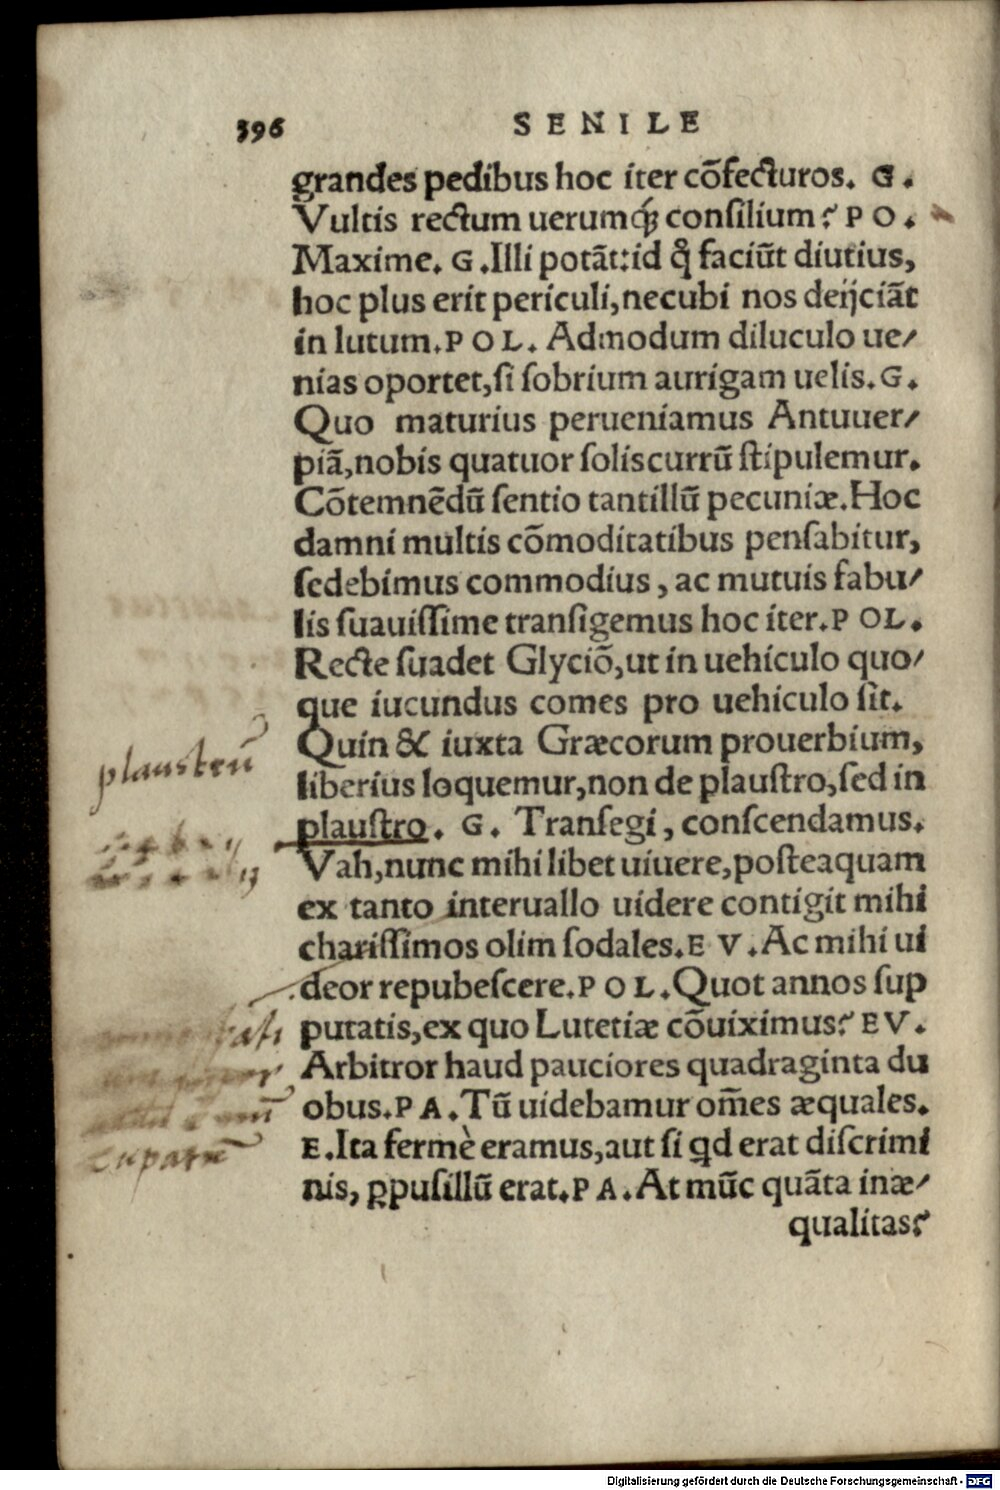 396 SENILE
grandes pedibus hoc iter cõfecturos. G.
Vultis rectum uerumq́ꝫ consilium? PO.
Maxime. G. Illi potãt: id q̊ faciũt diutius,
hoc plus erit periculi, necubi nos deijciãt
in lutum. POL. Admodum diluculo ue/
nias oportet, si sobrium aurigam uelis. G.
Quo maturius perueniamus Antuuer/
piã, nobis quatuor solis currũ stipulemur.
Cõtemnẽdũ sentio tantillũ pecuniæ. Hoc
damni multis cõmoditatibus pensabitur,
sedebimus commodius, ac mutuis fabu/
lis suauissime transigemus hoc iter. POL.
Recte suadet Glyciõ, ut in uehiculo quo/
que iucundus comes pro uehiculo sit.
Quin & iuxta Græcorum prouerbium,
liberius loquemur, non de plaustro, sed in
plaustro. G. Transegi, conscendamus.
Vah, nunc mihi libet uiuere, posteaquam
ex tanto interuallo uidere contigit mihi
charissimos olim sodales. EV. Ac mihi ui
deor repubescere. POL. Quot annos sup
putatis, ex quo Lutetiæ cõuiximus? EV.
Arbitror haud pauciores quadraginta du
obus. PA. Tũ uidebamur om̃es æquales.
E. Ita fermè eramus, aut si qd erat discrimi
nis, ꝑpusillũ erat. PA. At mũc quãta inæ/
qualitas?
plaustrũ
Digitalisierung gefördert durch die Deutsche Forschungsgemeinschaft - DFG